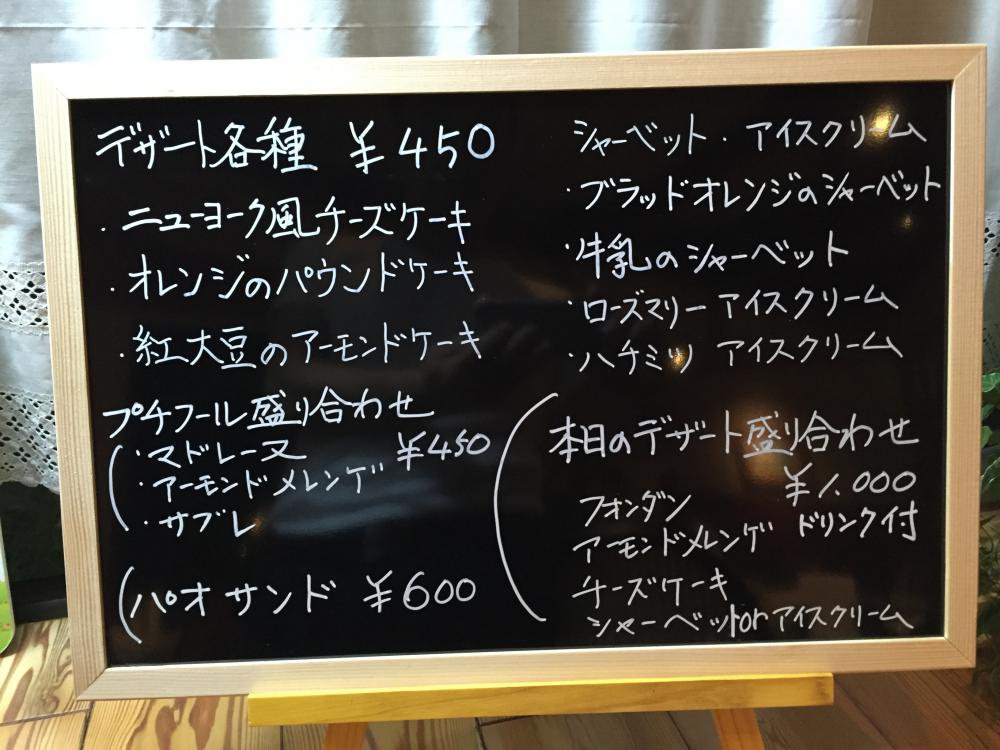 デザート各種 ¥450
・ニューヨーク風チーズケーキ
・オレンジのパウンドケーキ
・紅大豆のアーモンドケーキ
プチフール盛り合わせ
¥450
・マドレーヌ
・アーモンドメレンゲ
・サブレ
パオサンド ¥600
シャーベット・アイスクリーム
・ブラッドオレンジのシャーベット
・牛乳のシャーベット
・ローズマリーアイスクリーム
・ハチミツ アイスクリーム
本日のデザート盛り合わせ
¥1.000
ドリンク付
フォンダン
アーモンドメレンゲ
チーズケーキ
シャーベットorアイスクリーム